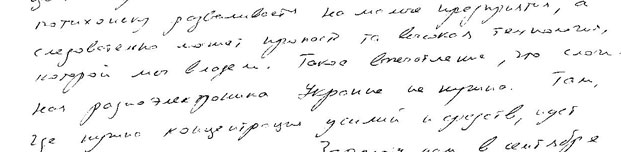 потихоньку разваливается на малые предприятия, а
следовательно может пропасть та высокая технология,
которой мы владеем. Такое впечатление, что слож-
ная радиоэлектроника Украине не нужна. Там,
где нужна концентрация усилий и средств, идет
нам в сентябре